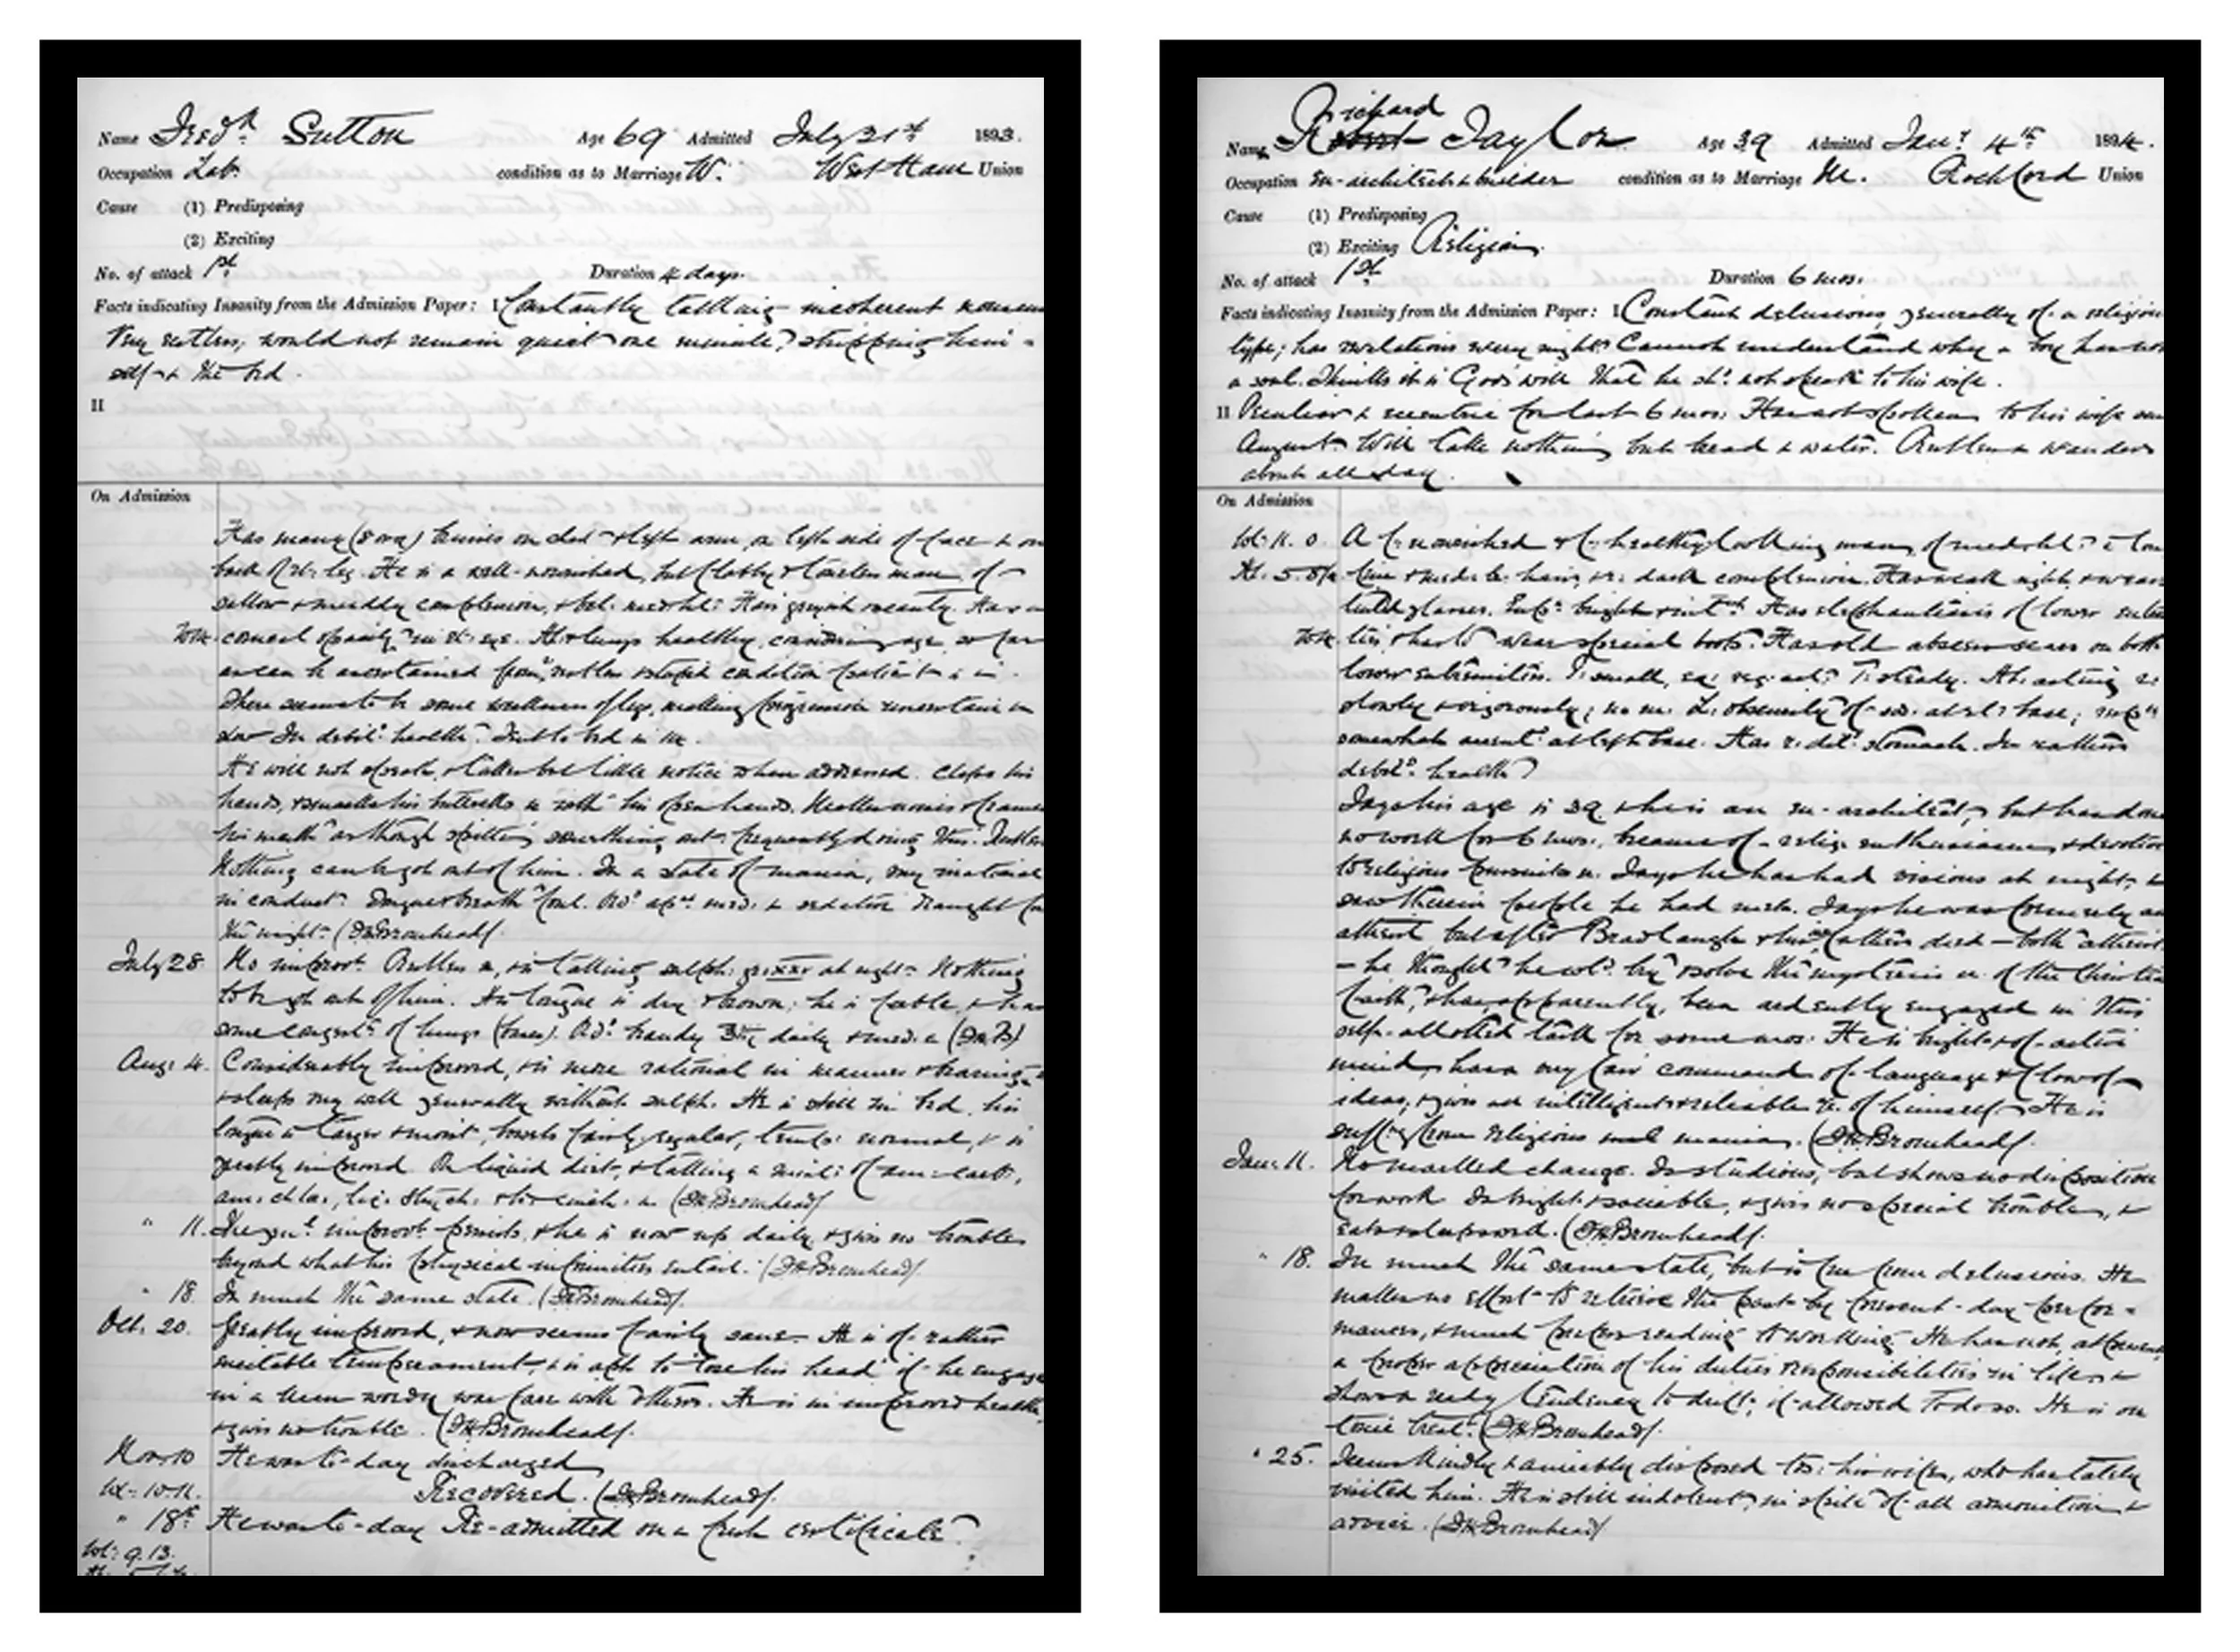 Name Fredk Sutton Age 69 Admitted July 21st 1893.
Occupation Lab. condition as to Marriage W. West Ham Union
Cause (1) Predisposing
(2) Exciting
No. of attack 1st. Duration 4 days.
Facts indicating Insanity from the Admission Paper: I Constantly talking incoherent
Very restless, would not remain quiet one minute, stripping him-
self & the bed.
II
On Admission
Has many bruises on chest & left arm, on left side of face & on
back of rt. leg. He is a well-nourished, but flabby & toneless man, of
sallow & muddy complexion,
corneal opacity in rt. eye. Ht. & lungs healthy, considering age, so far
as can be ascertained from restless condition patient is in.
There seems to be some weakness of legs, making progression uncertain &
slow. In debil. health. Sent to bed in
He will not speak, & takes but little notice when addressed. Claps his
hands, & smacks his buttocks with his open hands. Makes noises
his mouth as though spitting something out, frequently doing this.
Nothing can be got out of him. In a state of mania, very irrational
in conduct. Tongue & breath foul. Ord. med. & sedative draught for
the night. (FH Bromhead).
July 28. No improvt. Restless, & is taking sulph. gr. xxv at night. Nothing
to be got out of him. His tongue is dry & brown; he is feeble, & has
some congestn. of lungs (bases). Ord. brandy daily & med. (FHB)
Aug. 4. Considerably improved, & is more rational in manner & bearing,
& sleeps very well generally without sulph. He is still in bed, his
tongue is & moist, bowels fairly regular, temp. normal, & is
greatly improved. On liquid diet, & taking a mixt. of am. carb.,
(FH Bromhead).
" 11. The improvt. persists, & he is now up daily, & gives no trouble
beyond what his physical infirmities entail. (FH Bromhead).
" 18. In much the same state. (FH Bromhead).
Oct. 20. Greatly improved, & now seems fairly sane. He is of rather
excitable temperament, & is apt to "lose his head" if he engages
in a keen wordy warfare with others. He is in improved health,
& gives no trouble. (FH Bromhead).
Nov. 10 He was to-day discharged
Wt. 10.11. Recovered. (FH Bromhead).
" 18th He was to-day Re-admitted on a fresh certificate.
Wt. 9.13.
Richard
Name Robert Taylor Age 39 Admitted Jany 4th 1894.
Occupation Ex-architect & builder condition as to Marriage M. Rochford Union
Cause (1) Predisposing
(2) Exciting Religion.
No. of attack 1st. Duration 6 mos.
Facts indicating Insanity from the Admission Paper: I Constant delusions, generally of a religious
type; has revelations every night. Cannot understand why a boy has not
a soul. Thinks it is God's will that he shd. not speak to his wife.
II Peculiar & eccentric for last 6 mos. Has not spoken to his wife since
August. Will take nothing but bread & water. Restless & wanders
about all day.
On Admission
Wt. 11. 0. A f. nourished & f. healthy looking man, of med. ht.
Ht. 5. 8¼ hair, & dark complexion. Has weak sight, & wears
tinted glasses. bright Has elephantiasis of lower extremi-
ties, & has to wear special boots. Has old abscess scars on both
lower extremities. Ht. acting
slowly & vigorously; no m. base;
somewhat at left base. Has stomach. In rather
debild. health.
Says his age is 39, & he is an ex-architect, but has done
no work for 6 mos., because of religs. enthusiasm, & devotion
to religious pursuits. Says he has had visions at night, &
saw therein people he had met. Says he was formerly an
atheist, but after Bradlaugh & his own father died — both atheists
— he thought he wd. try & solve the mysteries of the Christian
faith, & has, apparently, been ardently engaged in this
self-allotted task for some mos. He is bright & of active
mind, has a very fair command of language & flow of
ideas, & gives an intelligent & reliable of himself. He is
suffg. from religious mania. (FH Bromhead).
Jan. 11. No marked change. Is studious, but shows no disposition
for work. Is bright & sociable, & gives no special trouble, &
eats & sleeps well. (FH Bromhead).
" 18. In much the same state, but is free from delusions. He
makes no effort to retrieve the past by present-day perfor-
mances, & much prefers reading to working. He has not, at present,
a proper appreciation of his duties & responsibilities in life, &
shows a ready tendency to drift, if allowed to do so. He is on
tonic treatt. (FH Bromhead).
" 25. Seems kindly & amiably disposed to his wife, who has lately
visited him. He is still indolent, in spite of all admonition &
advice. (FH Bromhead)